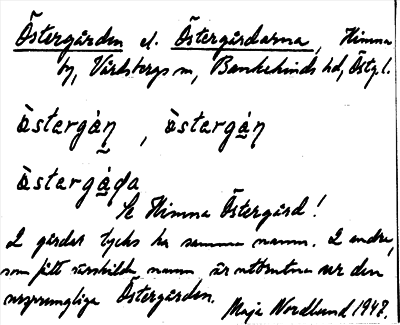 Östergården el. Östergårdarna, Himna
by, Vårdsbergs sn, Bankekinds hd, Östgl.
östergån̥, östergån̥
östergåda
Se Himna Östergård!
2 gårdar tycks ha samma namn. 2 andra,
som fått särskilda namn är utbrutna ur den
ursprungliga Östergården.
Maja Nordlund 1948.